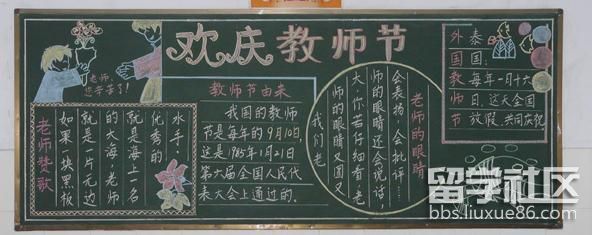 欢庆教师节
老师，
您辛苦了！
老师赞歌
如果一块黑板
就是一片无边
的大海，老师
就是海上一名
优秀的
水手。
教师节由来
我国的教师
节是每年的9月10日，
这是1985年1月21日
第六届全国人民代
表大会上通过的。
老师的眼睛
我们老
师的眼睛又圆又
大，你若仔细看，老
师的眼睛还会说话，
会表扬，会批评……
外国教师节
泰
国：
每年一月十六
日，这天全国
放假，共同庆祝
留学社区
bbs.liuxue86.com